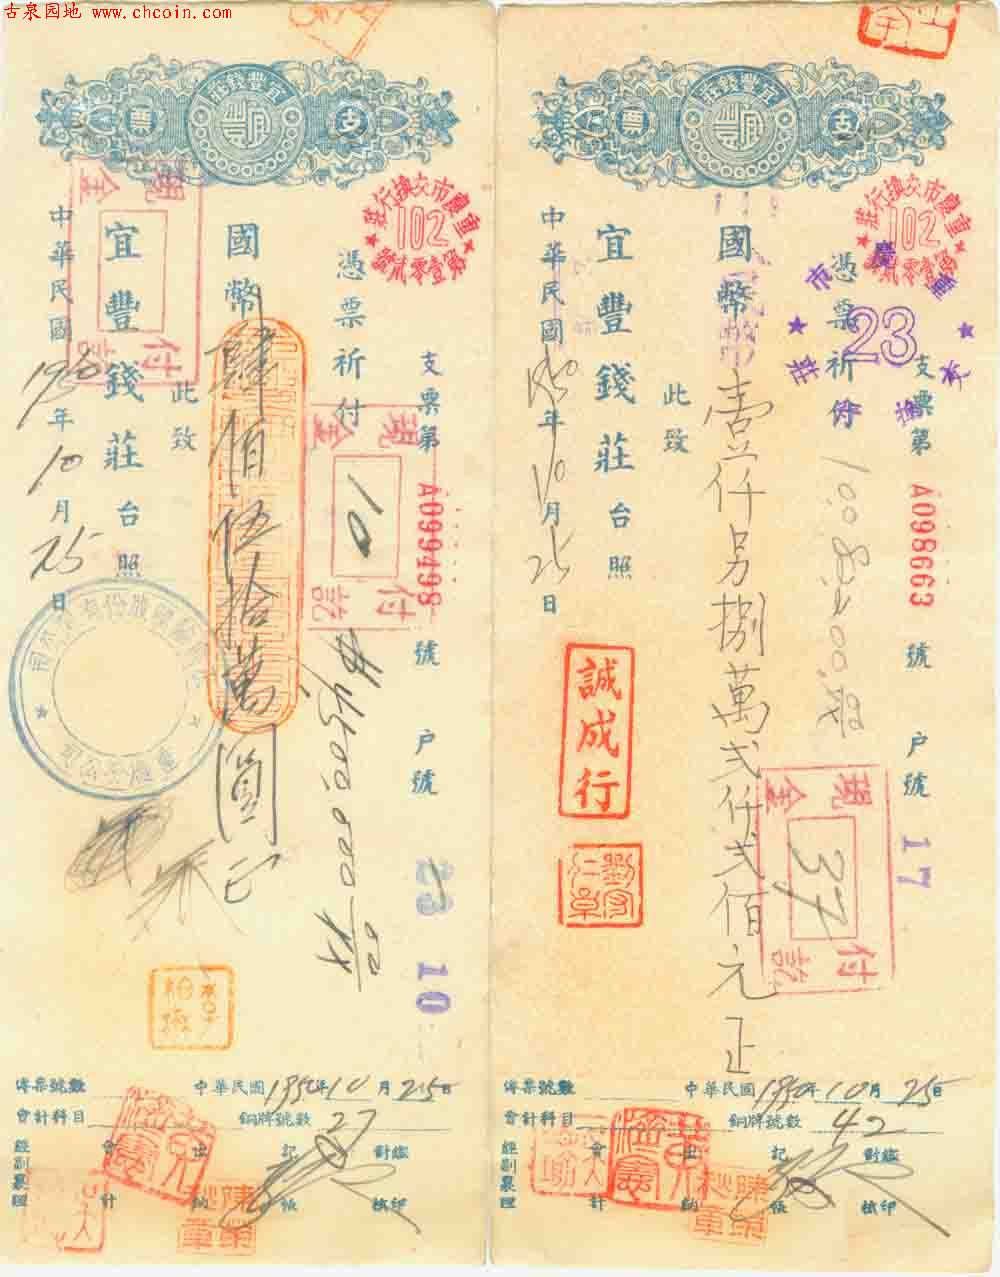 古泉园地 www.chcoin.com
宜豐錢莊
支票
重慶市交換行莊
102
第壹零貳號
憑票祈付
國幣肆佰伍拾萬
此致
宜豐錢莊台照
中華民國1950年10月25日
支票第A099498號
户號
23
10
現金付訖
現金付訖
10
傳票號數
中華民國1950年10月25日
會計科目
銅牌號數 27
經副襄理
會計
出納
記帳
對鑑核印
宜豐錢莊
支票
重慶市交換行莊
102
第壹零貳號
23
憑票祈付
國幣壹仟另捌萬弍仟弍佰元正
此致
宜豐錢莊台照
中華民國1950年10月25日
支票第A098663號
户號17
誠成行
現金付訖
37
傳票號數
中華民國1950年10月25日
會計科目
銅牌號數 42
經副襄理
會計
出納
記帳
對鑑核印